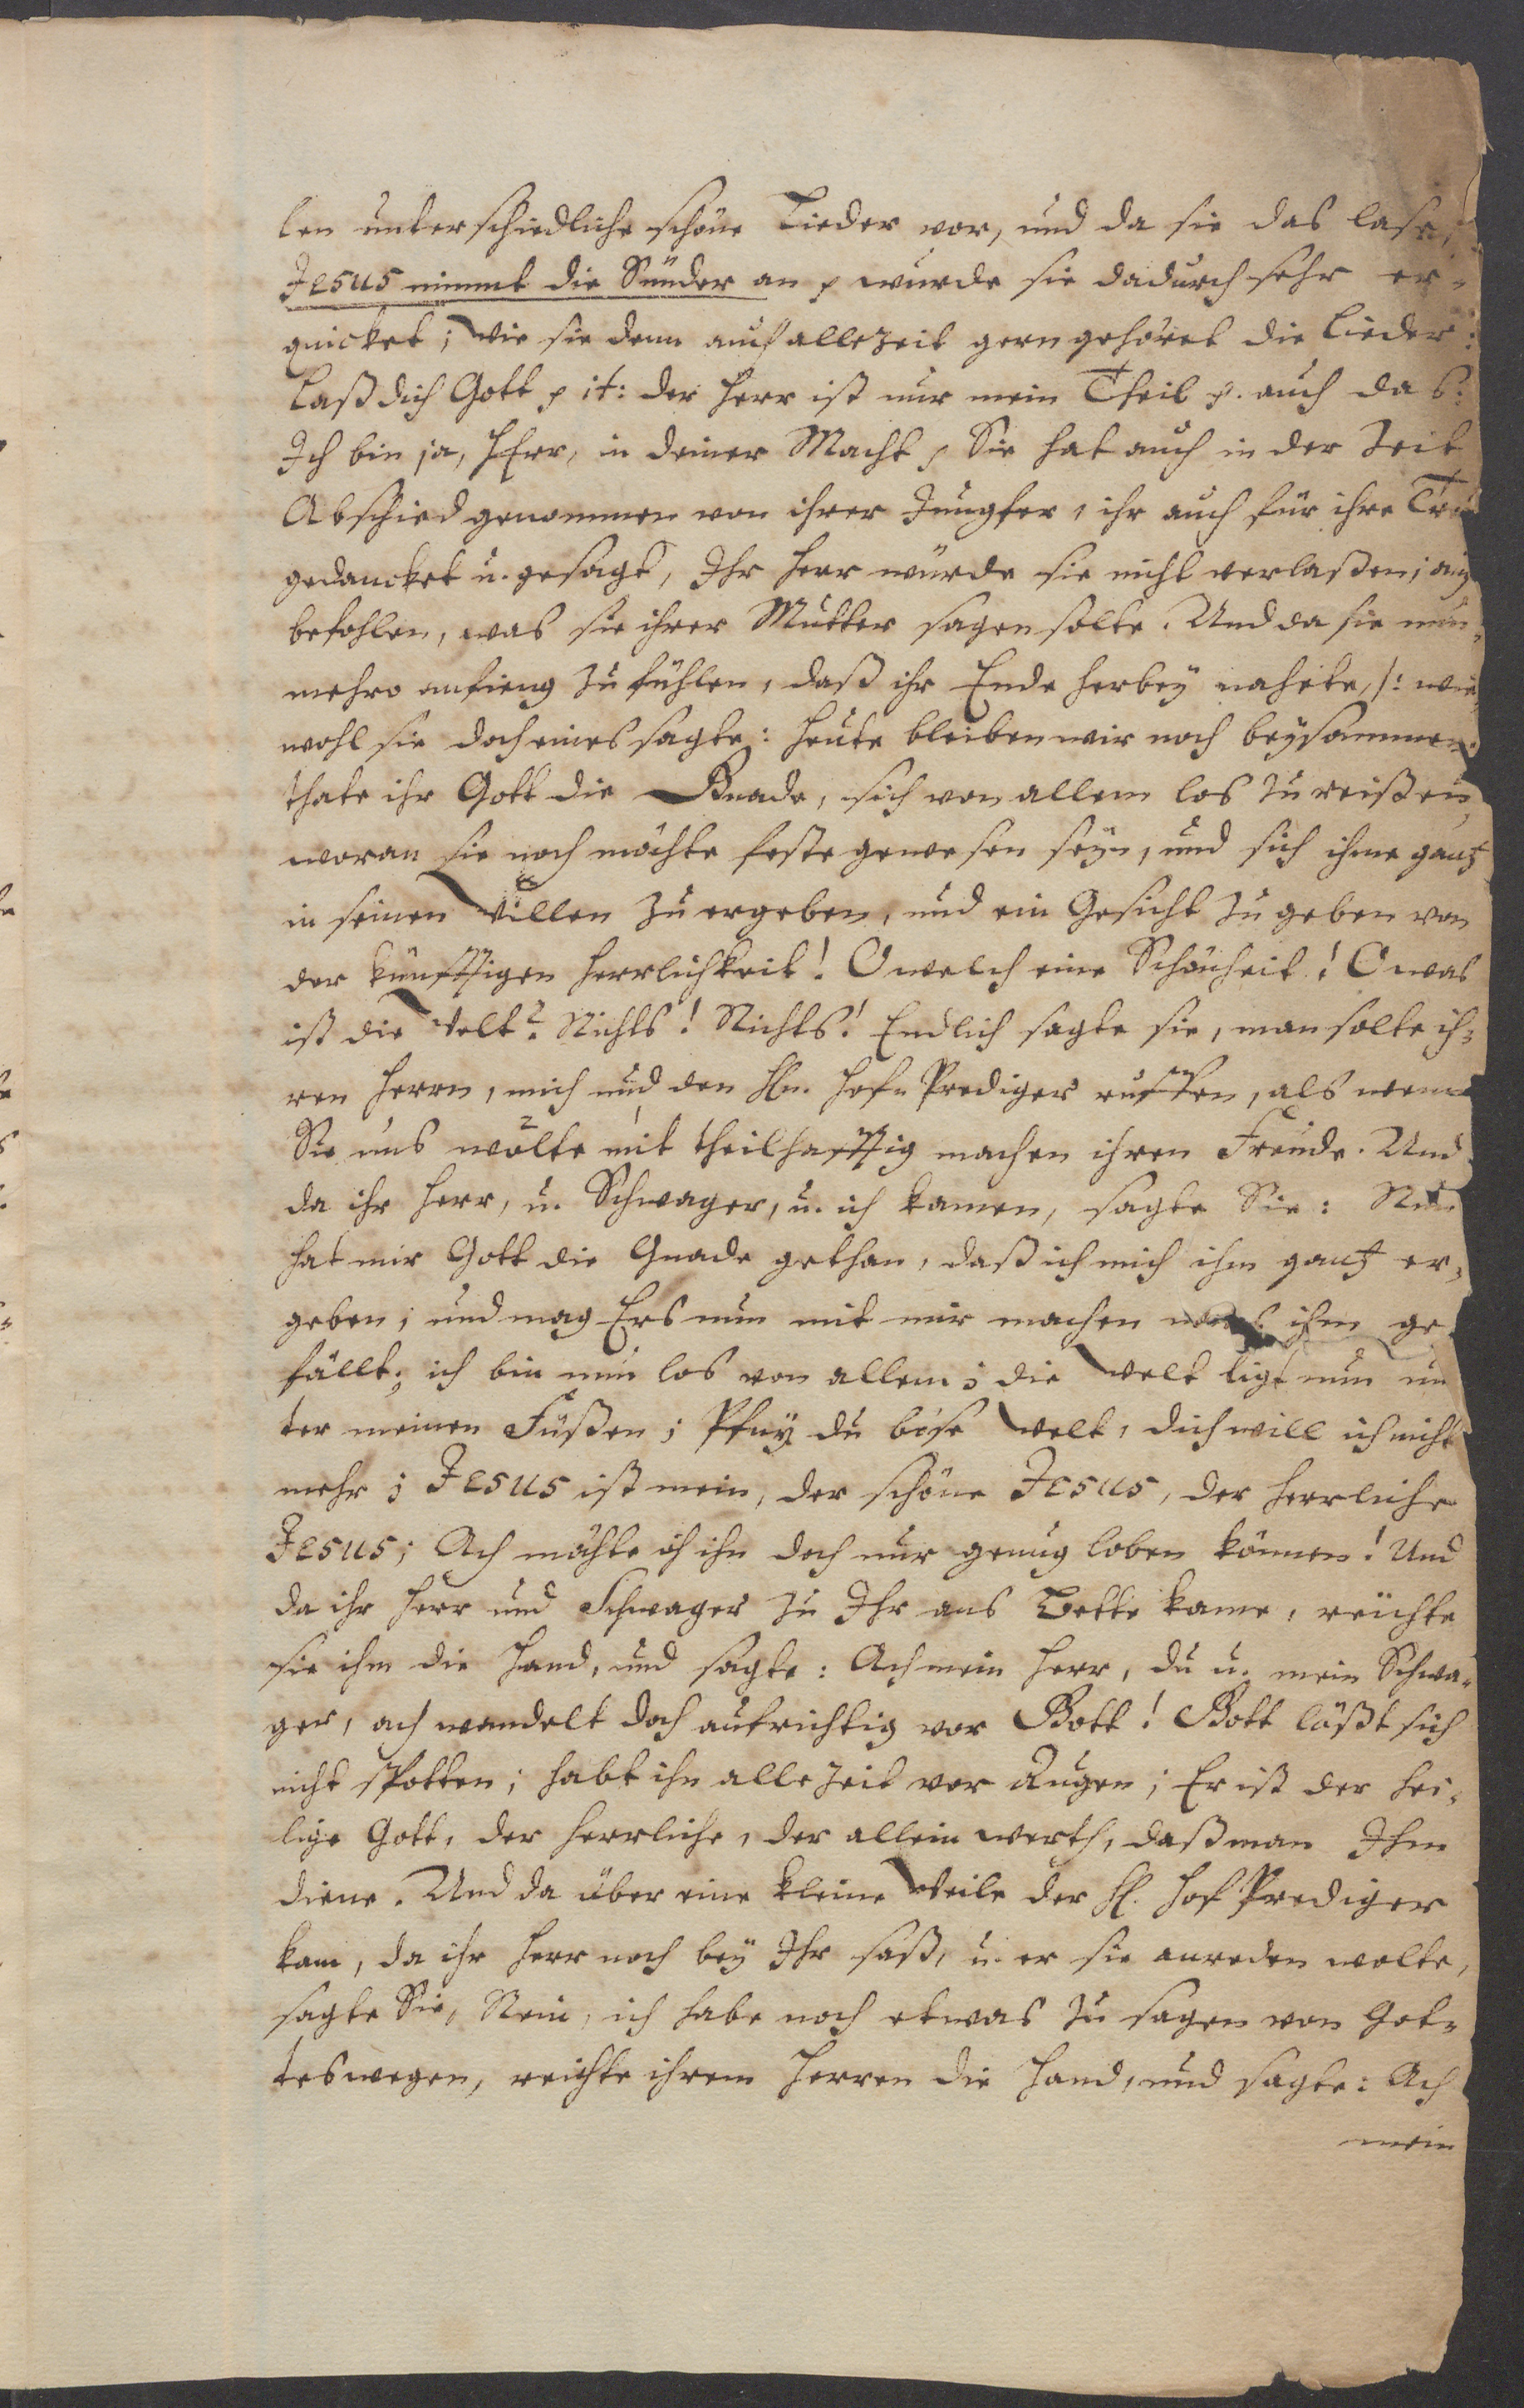 len unterschiedliche schöne Lieder vor, und da sie das lase,
JESUS nimmt die Sünder an p wurde sie dadurch sehr er-
quicket; Wie sie denn auch allezeit gern gehöret die Lieder:
Laß dich Gott p it: der Herr ist nur mein Theil p. auch das:
Ich bin ja, HErr, in deiner Macht p Sie hat auch in der Zeit
Abschied genommen von ihrer Jungfer, ihr auch für ihre Treu
gedancket u. gesagt, Ihr Herr würde sie nicht verlaßen;
befohlen, was sie ihrer Mutter sagen solte. Und da sie nun-
mehro anfieng zu fühlen, daß ihr Ende herbey nahete, /: wie
wohl sie doch eines sagte: heute bleiben wir noch beysammen:
thate ihr Gott die Gnade, sich von allem los zu reißen,
woran sie noch möchte feste gewesen seyn, und sich ihme gantz
in seinen Willen zu ergeben, und ein Gesicht zu geben von
der künfftigen Herrlichkeit! O welch eine Schönheit! O was
ist die Welt? Nichts! Nichts! Endlich sagte sie, man solte ih-
ren Herrn, mich und den Hln. Hof-Prediger ruffen, als wenn
Sie uns wolte mit theilhafftig machen ihren Freude. Und
da ihr Herr, u. Schwager, u. ich kamen, sagte Sie: Nun
hat mir Gott die Gnade gethan, daß ich mich ihm gantz er-
geben; und mag Ers nun mit mir machen was ihm ge-
fällt; ich bin nun los von allem; die Welt ligt nun un
ter meinen Füßen; Pfuy du böse Welt, dich will ich nicht
mehr; JESUS ist mein, der schöne JESUS, der herrliche
JESUS; Ach möchte ich ihn doch nur genug loben können! Und
da ihr Herr und Schwager zu Ihr ans Bette kame, reichte
sie ihm die Hand, und sagte: Ach mein Herr, du u. mein Schwa-
ger, ach wandelt doch aufrichtig vor Gott! Gott läßt sich
nicht spotten; habt ihn allezeit vor Augen; Er ist der hei-
lige Gott, der herrliche, der allein werth, daß man Ihm
diene. Und da über eine kleine Weile der Hl. Hof Prediger
kam, da ihr Herr noch bey Ihr saß, u. er sie anreden wolte,
sagte Sie, Nein, ich habe noch etwas zu sagen von Got-
tes wegen, reichte ihrem Herren die Hand, und sagte: Ach
mein